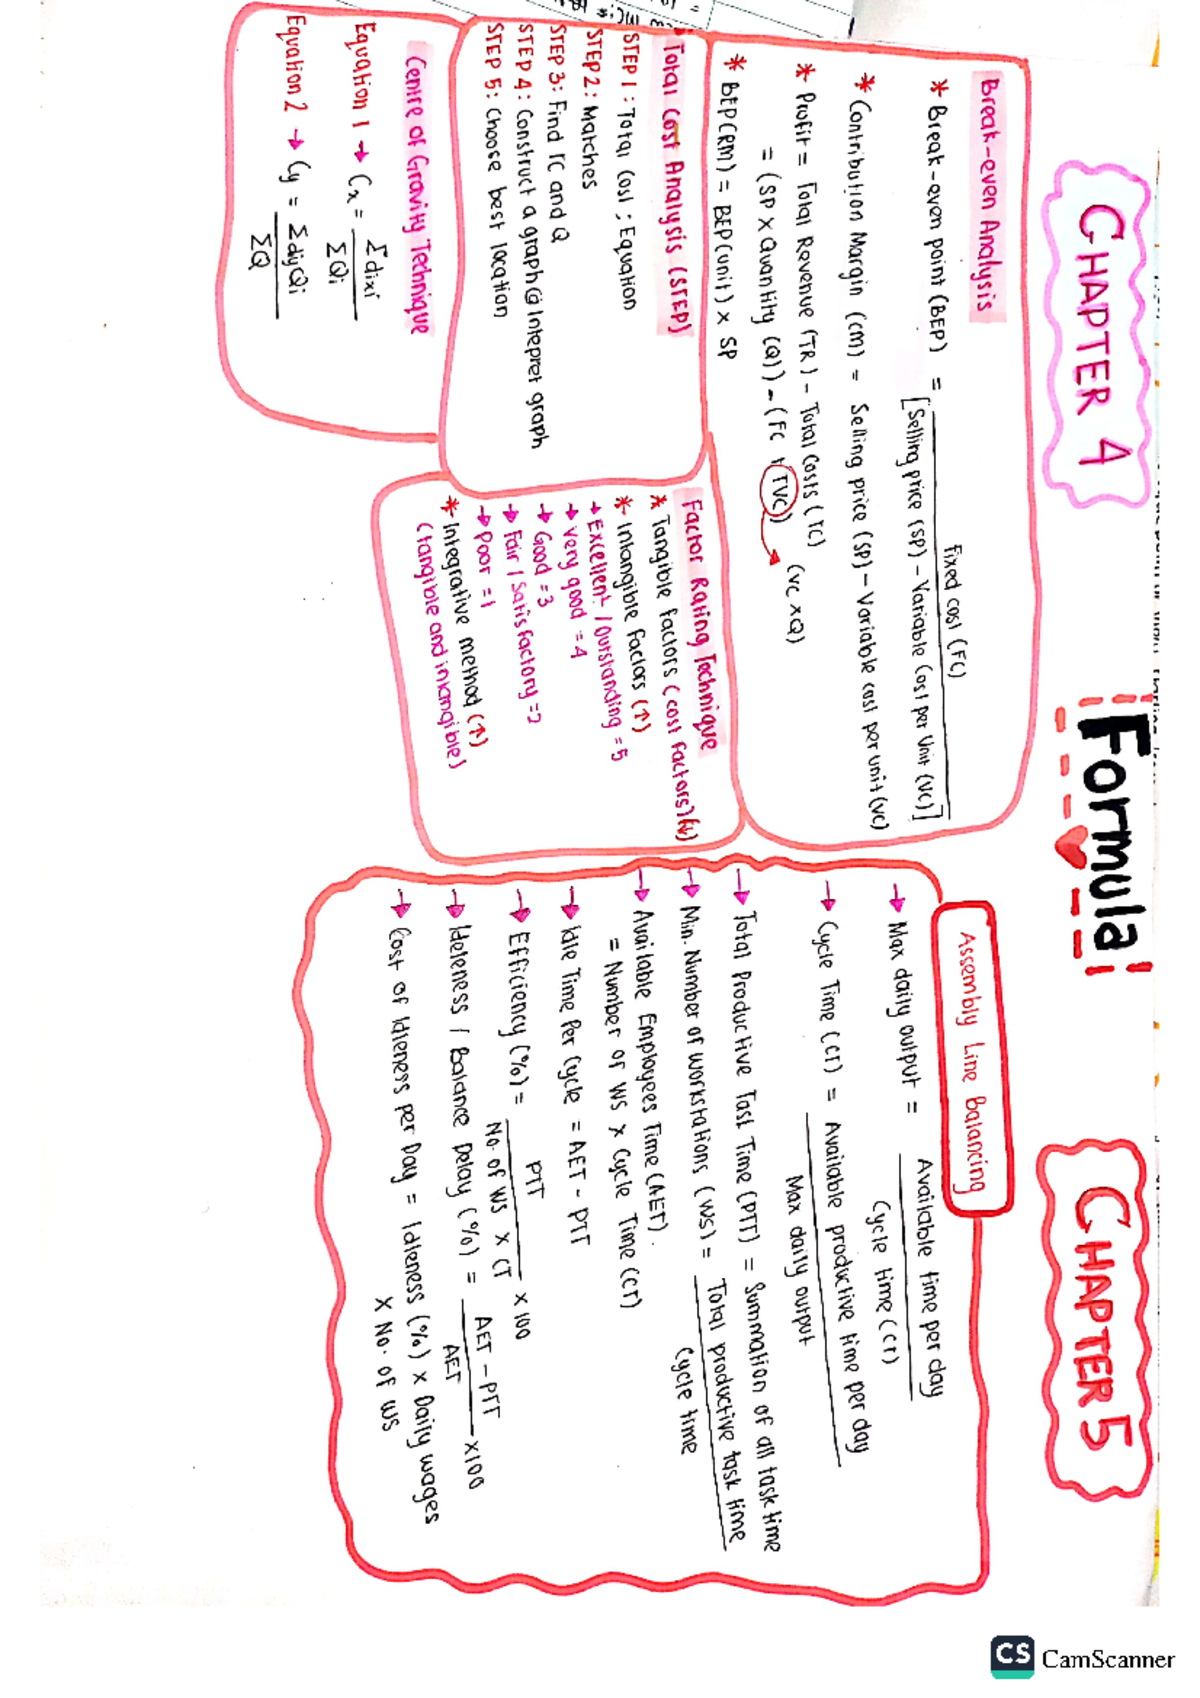 Formula
CHAPTER 4
Break-even Analysis
* Break-even point (BEP) = Fixed cost (FC)
[Selling price (SP) - Variable Cost per Unit (VC)]
* Contribution Margin (CM) = Selling price (SP) - Variable cost per unit (VC)
* Profit = Total Revenue (TR) - Total Costs (TC)
= (SP x Quantity (Q)) - (FC + TVC)) (VC x Q)
* BEP(RM) = BEP(unit) x SP
Total Cost Analysis (STEP)
STEP 1 : Total Cost ; Equation
STEP 2 : Matches
STEP 3 : Find TC and Q
STEP 4 : Construct a graph @ Intepret graph
STEP 5 : Choose best location
Factor Rating Technique
* Tangible factors (cost factors) (↓)
* Intangible factors (↑)
→ Excellent / Outstanding = 5
→ Very good = 4
→ Good = 3
→ Fair / Satisfactory = 2
→ Poor = 1
* Integrative method (↑)
(tangible and intangible)
Centre of Gravity Technique
Equation 1 → Cx = Σdixi
ΣQi
Equation 2 → Cy = ΣdiyQi
ΣQ
CHAPTER 5
Assembly Line Balancing
→ Max daily output = Available time per day
Cycle time (CT)
→ Cycle Time (CT) = Available productive time per day
Max daily output
→ Total Productive Task Time (PTT) = Summation of all task time
→ Min. Number of workstations (WS) = Total productive task time
Cycle time
→ Available Employees Time (AET).
= Number of WS x Cycle Time (CT)
→ Idle Time Per Cycle = AET - PTT
→ Efficiency (%) = PTT x 100
No. of WS x CT
→ Ideleness / Balance Delay (%) = AET - PTT x100
AET
→ Cost of Idleness per Day = Idleness (%) x Daily wages
x No. of WS
CS CamScanner